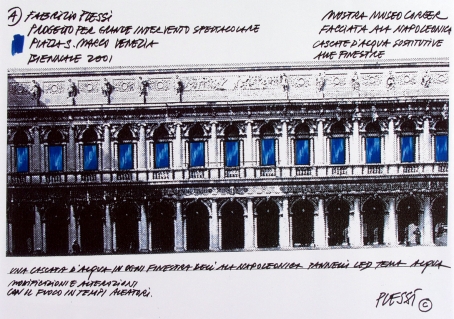 A FABRIZIO PLESSI
PROGETTO PER GRANDE INTERVENTO SPETTACOLARE
PIAZZA S. MARCO VENEZIA
BIENNALE 2001
MOSTRA MUSEO CORRER
FACCIATA ALA NAPOLEONICA
CASCATE D'ACQUA SOSTITUTIVE
ALLE FINESTRE
UNA CASCATA D'ACQUA IN OGNI FINESTRA DELL'ALA NAPOLEONICA PANNELLI LED TEMA ACQUA
MODIFICAZIONI E ALTERAZIONI
CON IL FUOCO IN TEMPI ALEATORI.
PLESSI ©